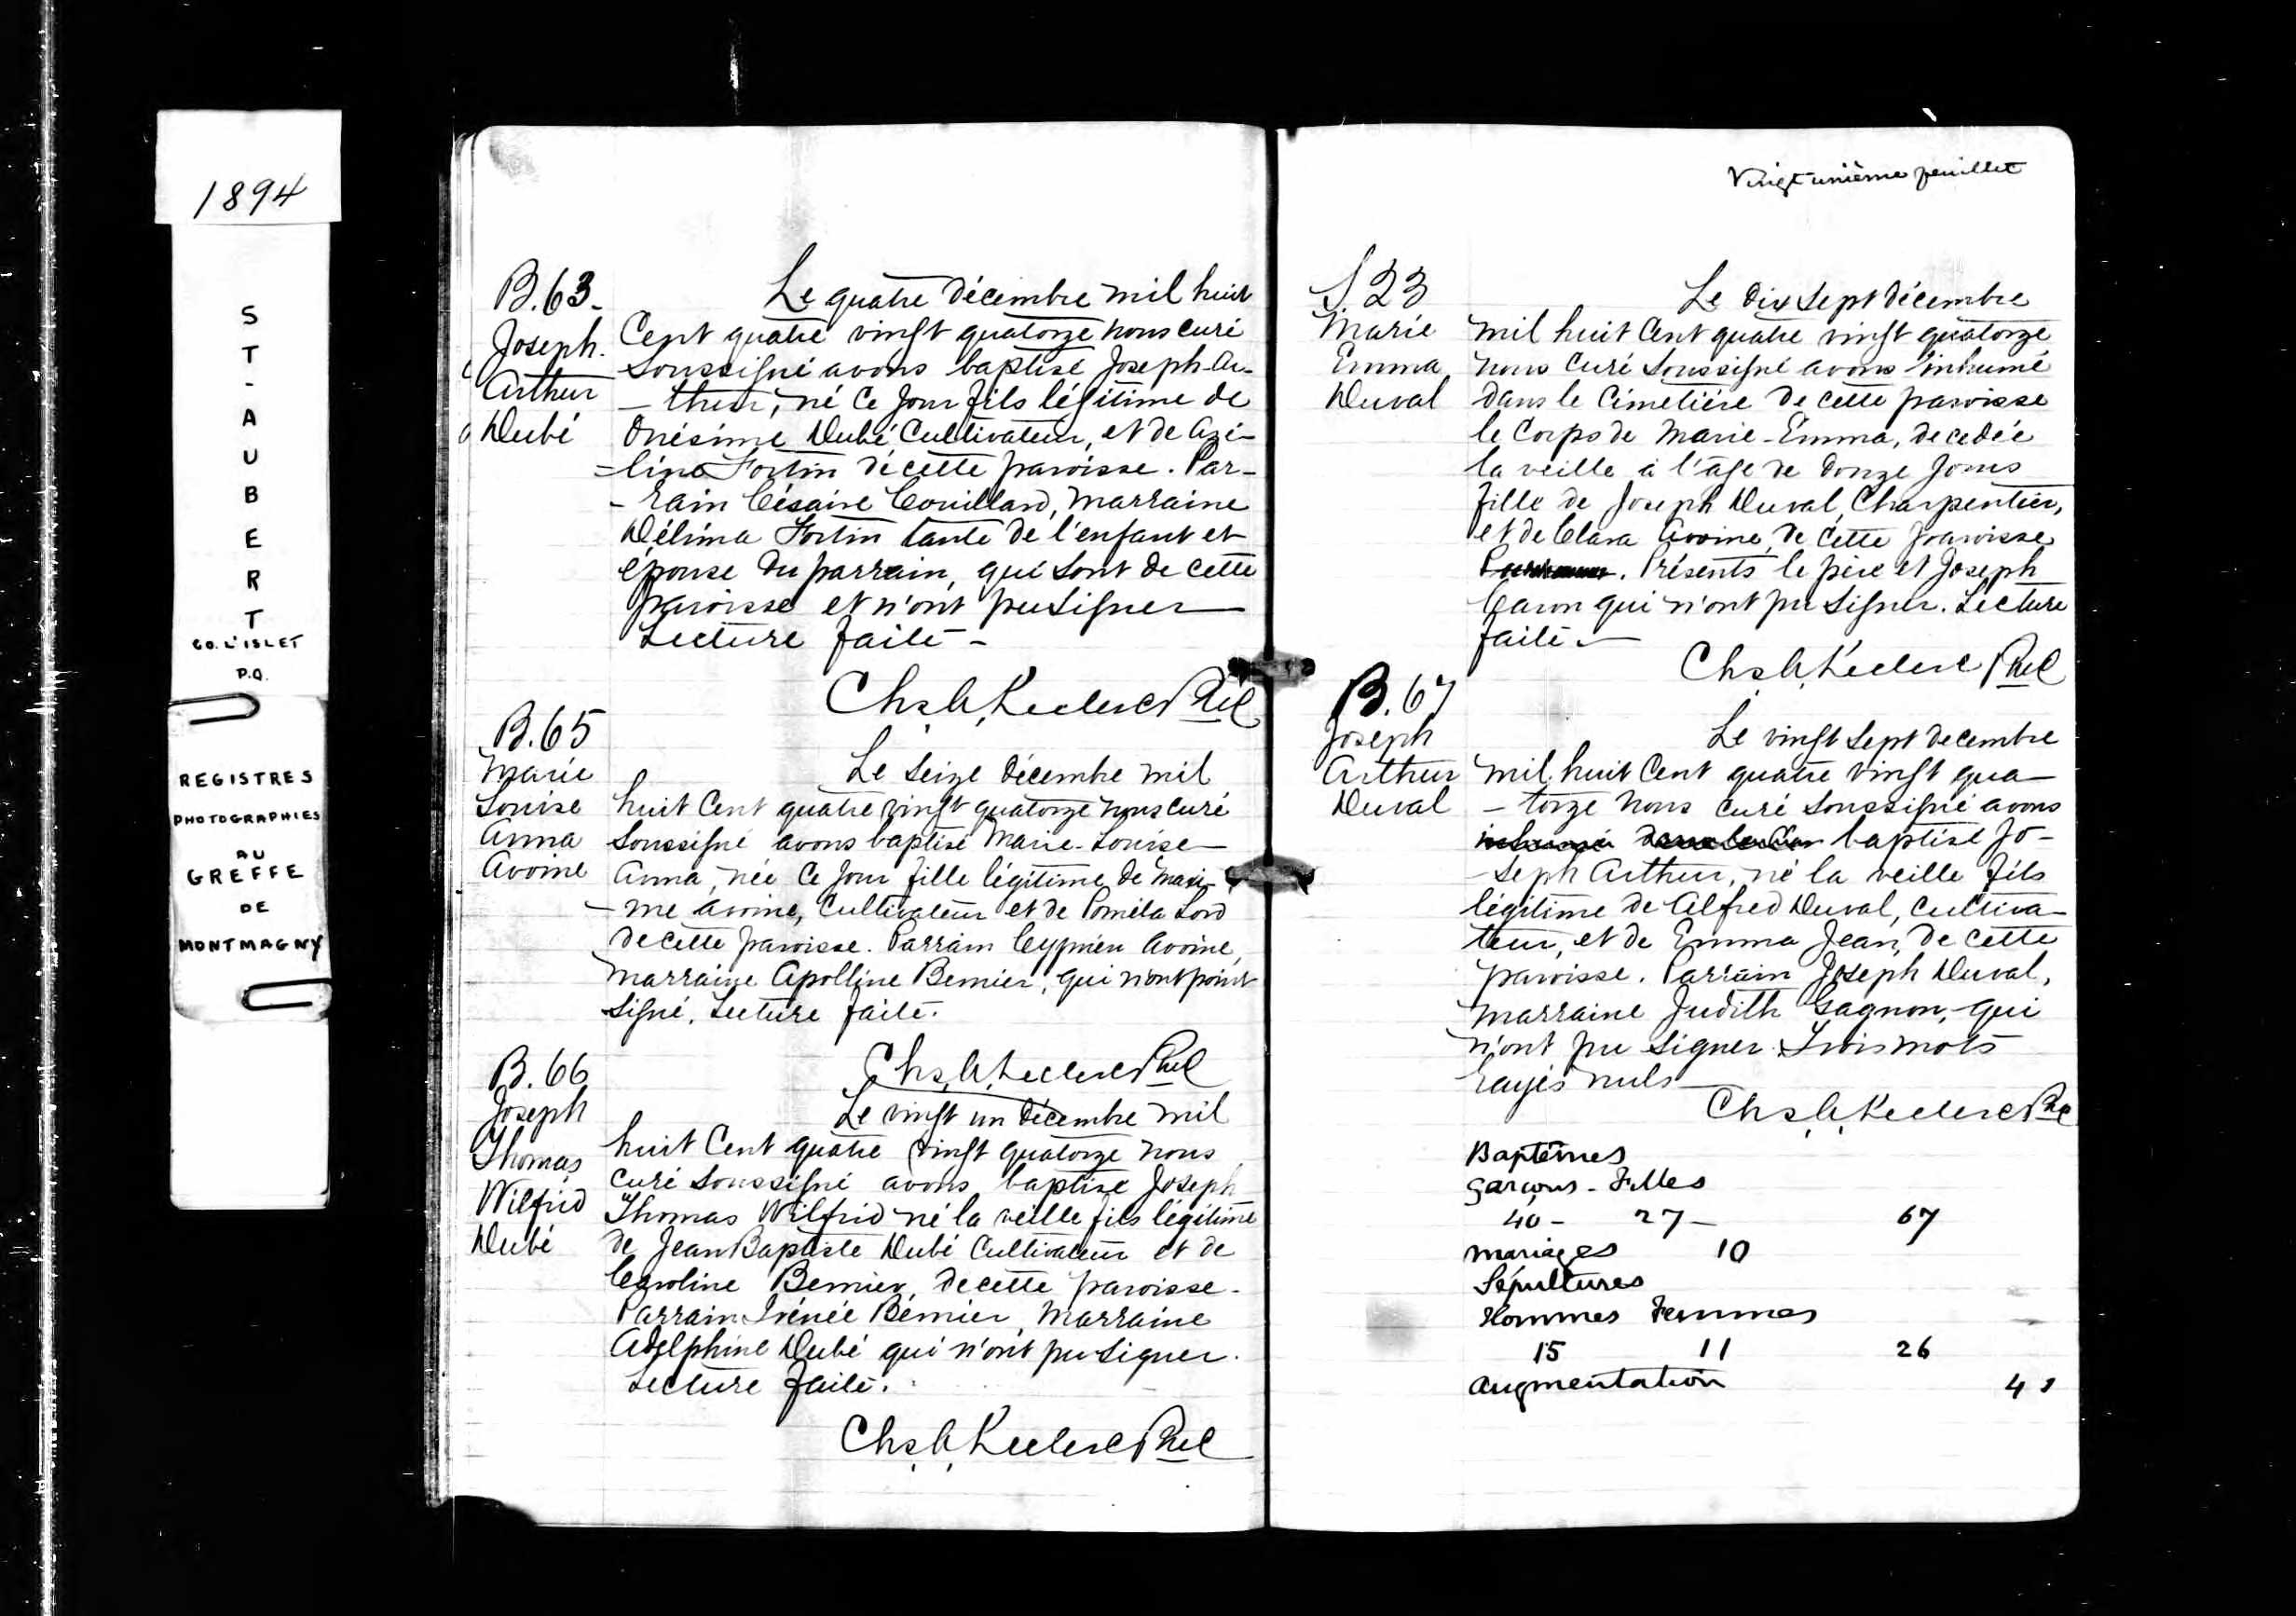 1894
ST-AUBERT
CO. L'ISLET
P.Q.
REGISTRES
PHOTOGRAPHIES
AU
GREFFE
DE
MONTMAGNY
B.63.
Joseph.
Arthur
Dubé
Le quatre décembre mil huit
Cent quatre vingt quatorze nous curé
Soussigné avons baptisé Joseph-Ar-
-thur, né ce jour fils légitime de
Onésime Dubé Cultivateur, et de Azé-
=line Fortin de cette paroisse. Par-
-rain Césaire Couillard, Marraine
Délima Fortin tante de l'enfant et
épouse du parrain, qui sont de cette
paroisse et n'ont pu signer
Lecture faite -
Chs. A. Leclerc Ptre
B.65
Marie
Louise
Anna
Avoine
Le Seize décembre mil
huit Cent quatre vingt quatorze nous curé
Soussigné avons baptisé Marie-Louise-
Anna, née ce jour fille légitime de Maxi-
-me Avoine, Cultivateur et de Poméla Lord
de cette paroisse. Parrain Cyprien Avoine,
Marraine Apolline Bernier, qui n'ont point
signé. Lecture faite.
Chs. A. Leclerc Ptre
B.66
Joseph
Thomas
Wilfrid
Dubé
Le vingt un décembre mil
huit Cent quatre vingt quatorze nous
curé soussigné avons baptisé Joseph
Thomas Wilfrid né la veille fils légitime
de Jean Baptiste Dubé Cultivateur et de
Caroline Bernier, de cette paroisse.
Parrain Irénée Bernier, Marraine
Adelphine Dubé qui n'ont pu signer.
Lecture faite.
Chs. A. Leclerc Ptre
Vingt unième feuillet
S.23
Marie
Emma
Duval
Le Dix Sept décembre
mil huit Cent quatre vingt quatorze
nous Curé Soussigné avons inhumé
dans le Cimetière de cette paroisse
le Corps de Marie-Emma, decedée
la veille à l'âge de douze jours
fille de Joseph Duval, Charpentier,
et de Clara Avoine, de cette paroisse
. Présents le père et Joseph
Caron qui n'ont pu signer. Lecture
faite.
Chs. A. Leclerc Ptre
B.67
Joseph
Arthur
Duval
Le vingt Sept decembre
mil huit Cent quatre vingt qua-
-torze nous curé Soussigné avons
inhumé dans le Cim baptisé Jo-
-seph Arthur, né la veille fils
légitime de Alfred Duval, cultiva-
teur, et de Emma Jean, de cette
paroisse. Parrain Joseph Duval,
Marraine Judith Gagnon, qui
n'ont pu signer. Trois mots
rayés nuls
Chs. A. Leclerc Ptre
Baptêmes
Garçons - Filles
40 - 27 - 67
Mariages 10
Sépultures
Hommes Femmes
15 11 26
Augmentation 41